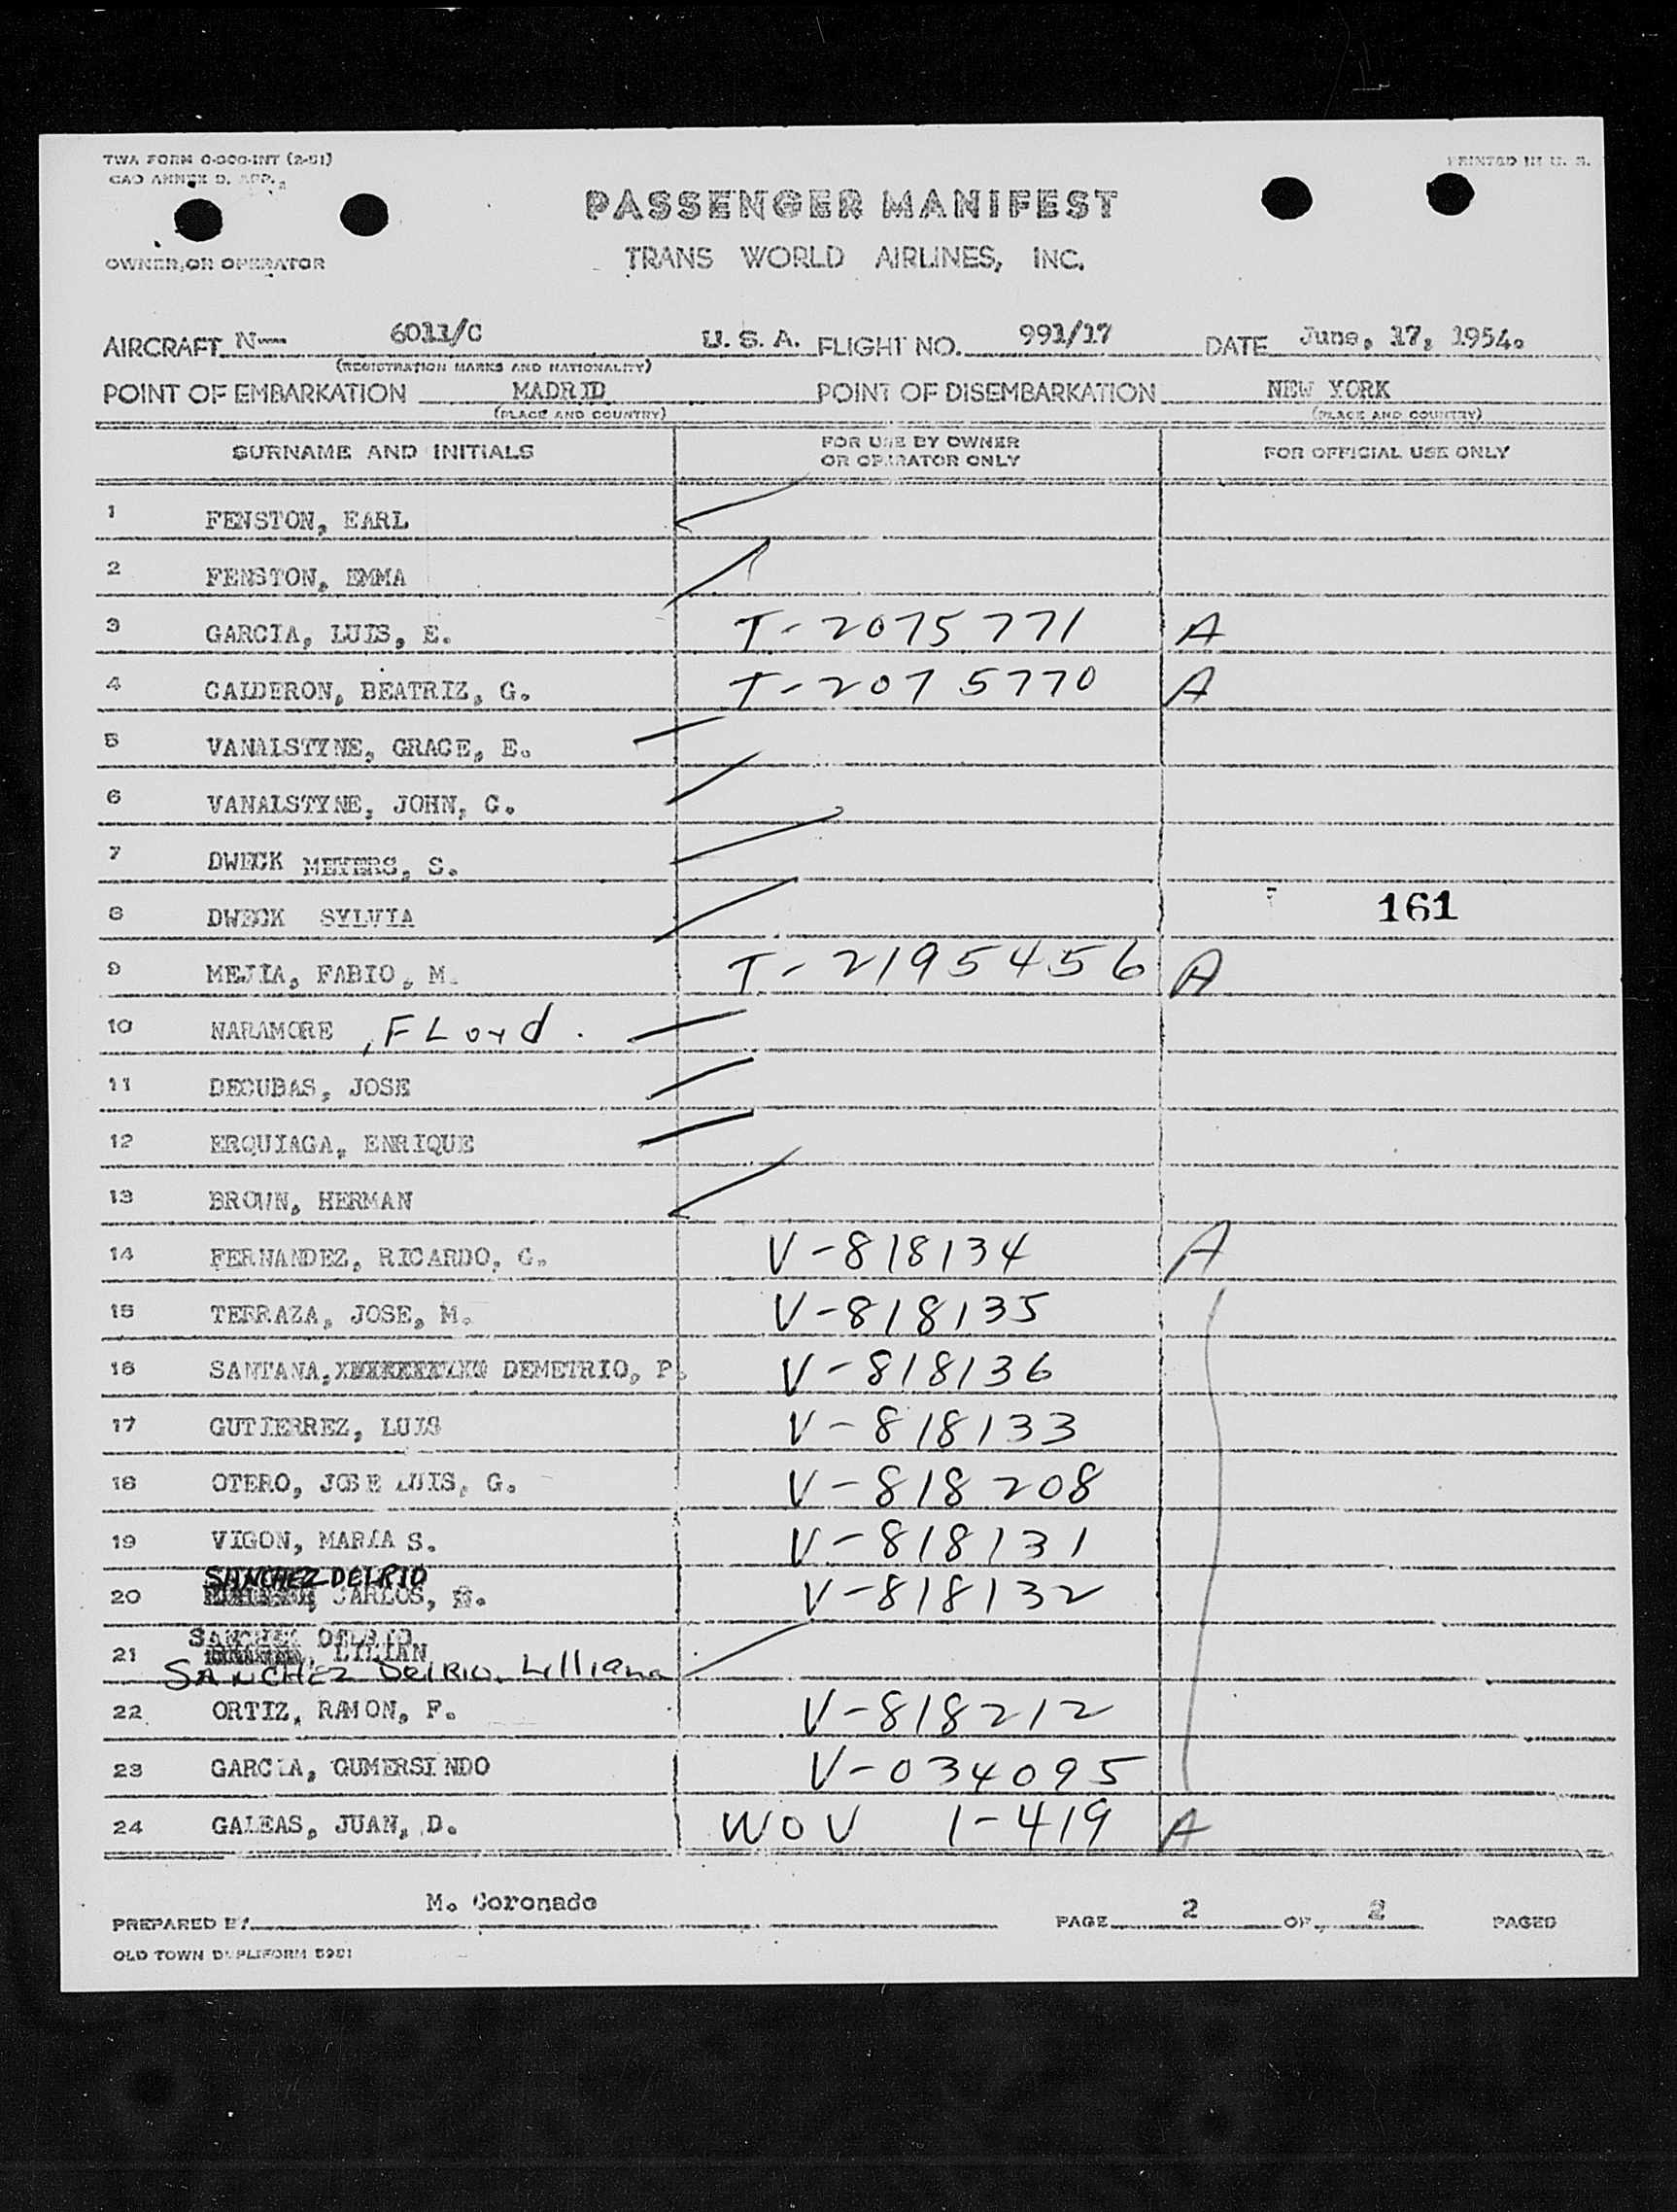 TWA FORM O-300-INT (2-51)
CAO ANNEX 9, APP.
PRINTED IN U. S.
PASSENGER MANIFEST
OWNER OR OPERATOR TRANS WORLD AIRLINES, INC.
AIRCRAFT N--- 6011/C U. S. A. FLIGHT NO. 991/17 DATE June, 17, 1954.
(REGISTRATION MARKS AND NATIONALITY)
POINT OF EMBARKATION MADRID POINT OF DISEMBARKATION NEW YORK
(PLACE AND COUNTRY) (PLACE AND COUNTRY)
SURNAME AND INITIALS FOR USE BY OWNER OR OPERATOR ONLY FOR OFFICIAL USE ONLY
1 FENSTON, EARL
2 FENSTON, EMMA
3 GARCIA, LUIS, E. T-2075771 A
4 CALDERON, BEATRIZ, G. T-2075770 A
5 VANALSTYNE, GRACE, E.
6 VANALSTYNE, JOHN, C.
7 DWECK S.
8 DWECK SYLVIA 161
9 MEJIA, FABIO, M. T-2195456 A
10 NARAMORE, FLoyd.
11 DECUBAS, JOSE
12 ERQUIAGA, ENRIQUE
13 BROWN, HERMAN
14 FERNANDEZ, RICARDO, C. V-818134 A
15 TERRAZA, JOSE, M. V-818135
16 SANTANA, DEMETRIO, P. V-818136
17 GUTIERREZ, LUIS V-818133
18 OTERO, JOSE LUIS, G. V-818208
19 VIGON, MARIA S. V-818131
SANCHEZ DELRIO
20 CARLOS, V-818132
SANCHEZ DELRIO
21 LILIAN
SANCHEZ DELRIO, Lilliana
22 ORTIZ, RAMON, F. V-818212
23 GARCIA, GUMERSINDO V-034095
24 GALEAS, JUAN, D. WOV 1-419 A
PREPARED BY M. Coronado PAGE 2 OF 2 PAGES
OLD TOWN DUPLIFORM 5981